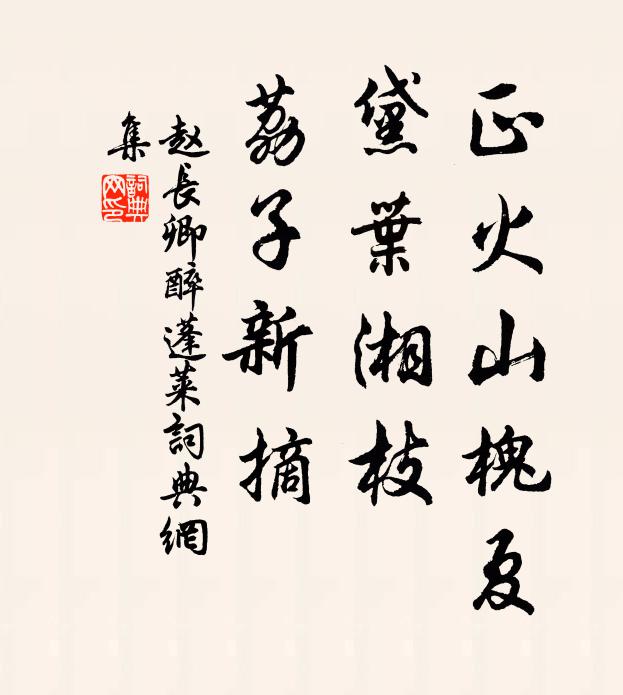 正火山槐夏
黛葉湘枝
荔子新摘
赵長卿醉蓬莱詞典網
集
詞典
网印